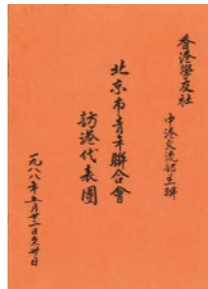 香港學友社
中港交流部主辦
北京市青年聯合會
訪港代表團
一九八八年五月廿三日至卅日